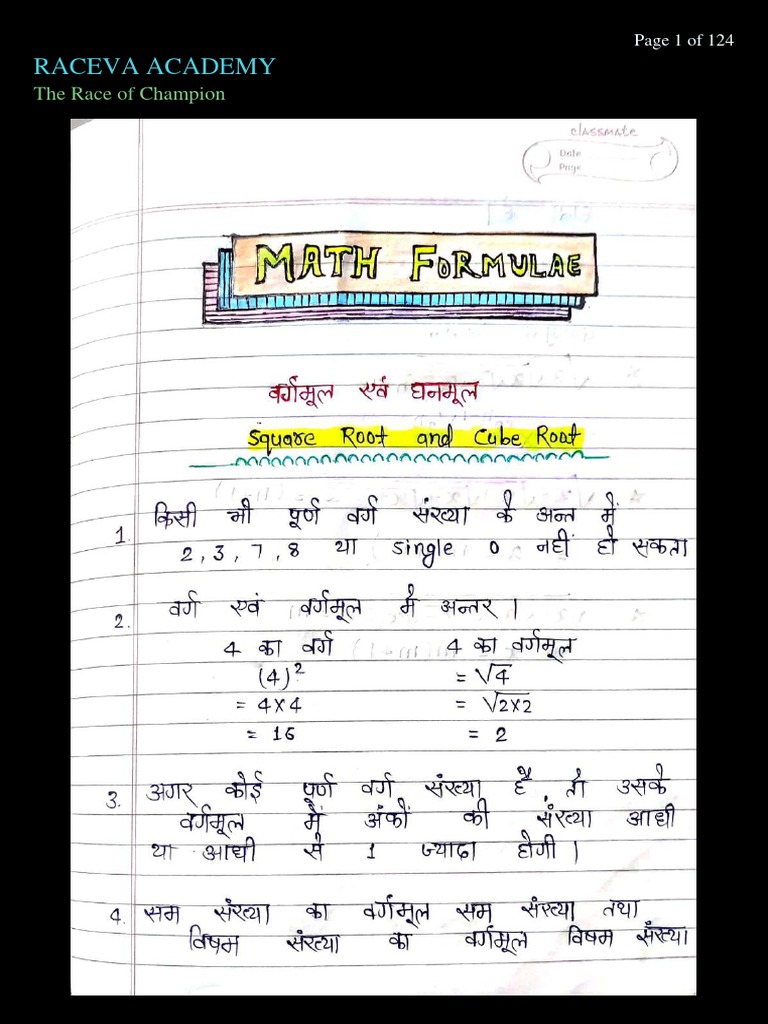 Page 1 of 124
RACEVA ACADEMY
The Race of Champion
classmate
Date
Page
MATH FORMULAE
वर्गमूल एवं घनमूल
Square Root and Cube Root
1. किसी भी पूर्ण वर्ग संख्या के अन्त में
2, 3, 7, 8 या single 0 नहीं हो सकता
2. वर्ग एवं वर्गमूल में अन्तर ।
4 का वर्ग 4 का वर्गमूल
(4)² = √4
= 4×4 = √2×2
= 16 = 2
3. अगर कोई पूर्ण वर्ग संख्या है, तो उसके
वर्गमूल में अंकों की संख्या आधी
या आधी से 1 ज्यादा होगी ।
4. सम संख्या का वर्गमूल सम संख्या तथा
विषम संख्या का वर्गमूल विषम संख्या